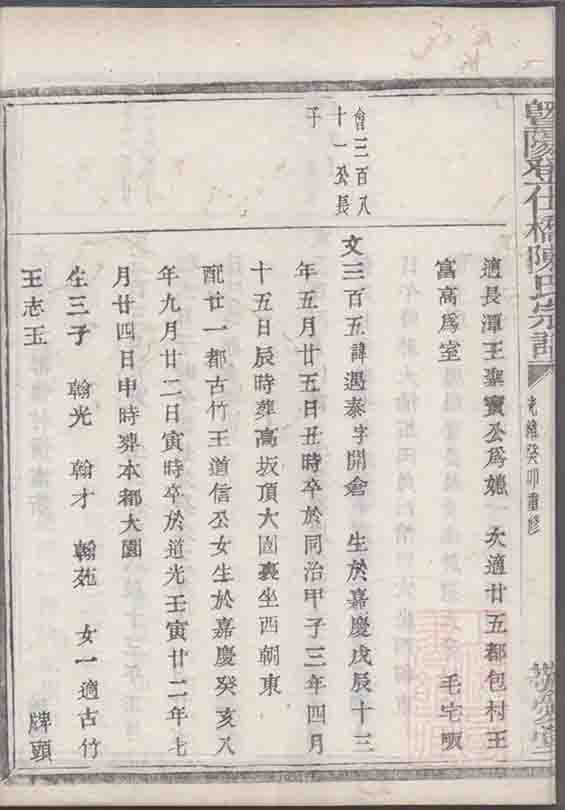 暨陽登仕橋陳氏宗譜
光緒癸卯重修
適長潭王
寳公為媳 次適廿五都包村王
富高為室 毛宅
會三百八
十一公長
子
文三百五諱遇泰字開倉 生於嘉慶戊辰十三
年五月廿五日丑時卒於同治甲子三年四月
十五日辰時葬高坂頂大園裏坐西朝東
配廿一都古竹王道信公女生於嘉慶癸亥八
年九月廿二日寅時卒於道光壬寅廿二年七
月廿四日申時葬本都大園
生三子 翰光 翰才 翰苑 女一適古竹
王志玉 牌頭